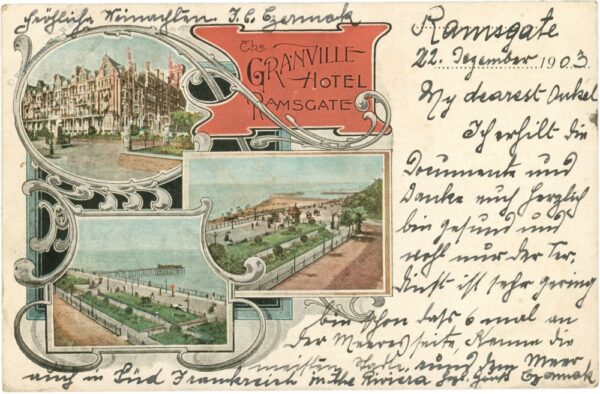 fröhliche Weinachten. J. C. Czermak
The
GRANVILLE
HOTEL
RAMSGATE
Ramsgate
22. Dezember 1903
My dearest Onkel
Ich erhilt die
Documente und
Danke euch herzlich
bin gesund und
wohl nur der Ver.
dinst ist sehr gering
bin schon dass 6 mal an
der Meeresseite, Kenne die
meisten rund dem Meer
auch in Süd Frankreich in the Riviera Czermak